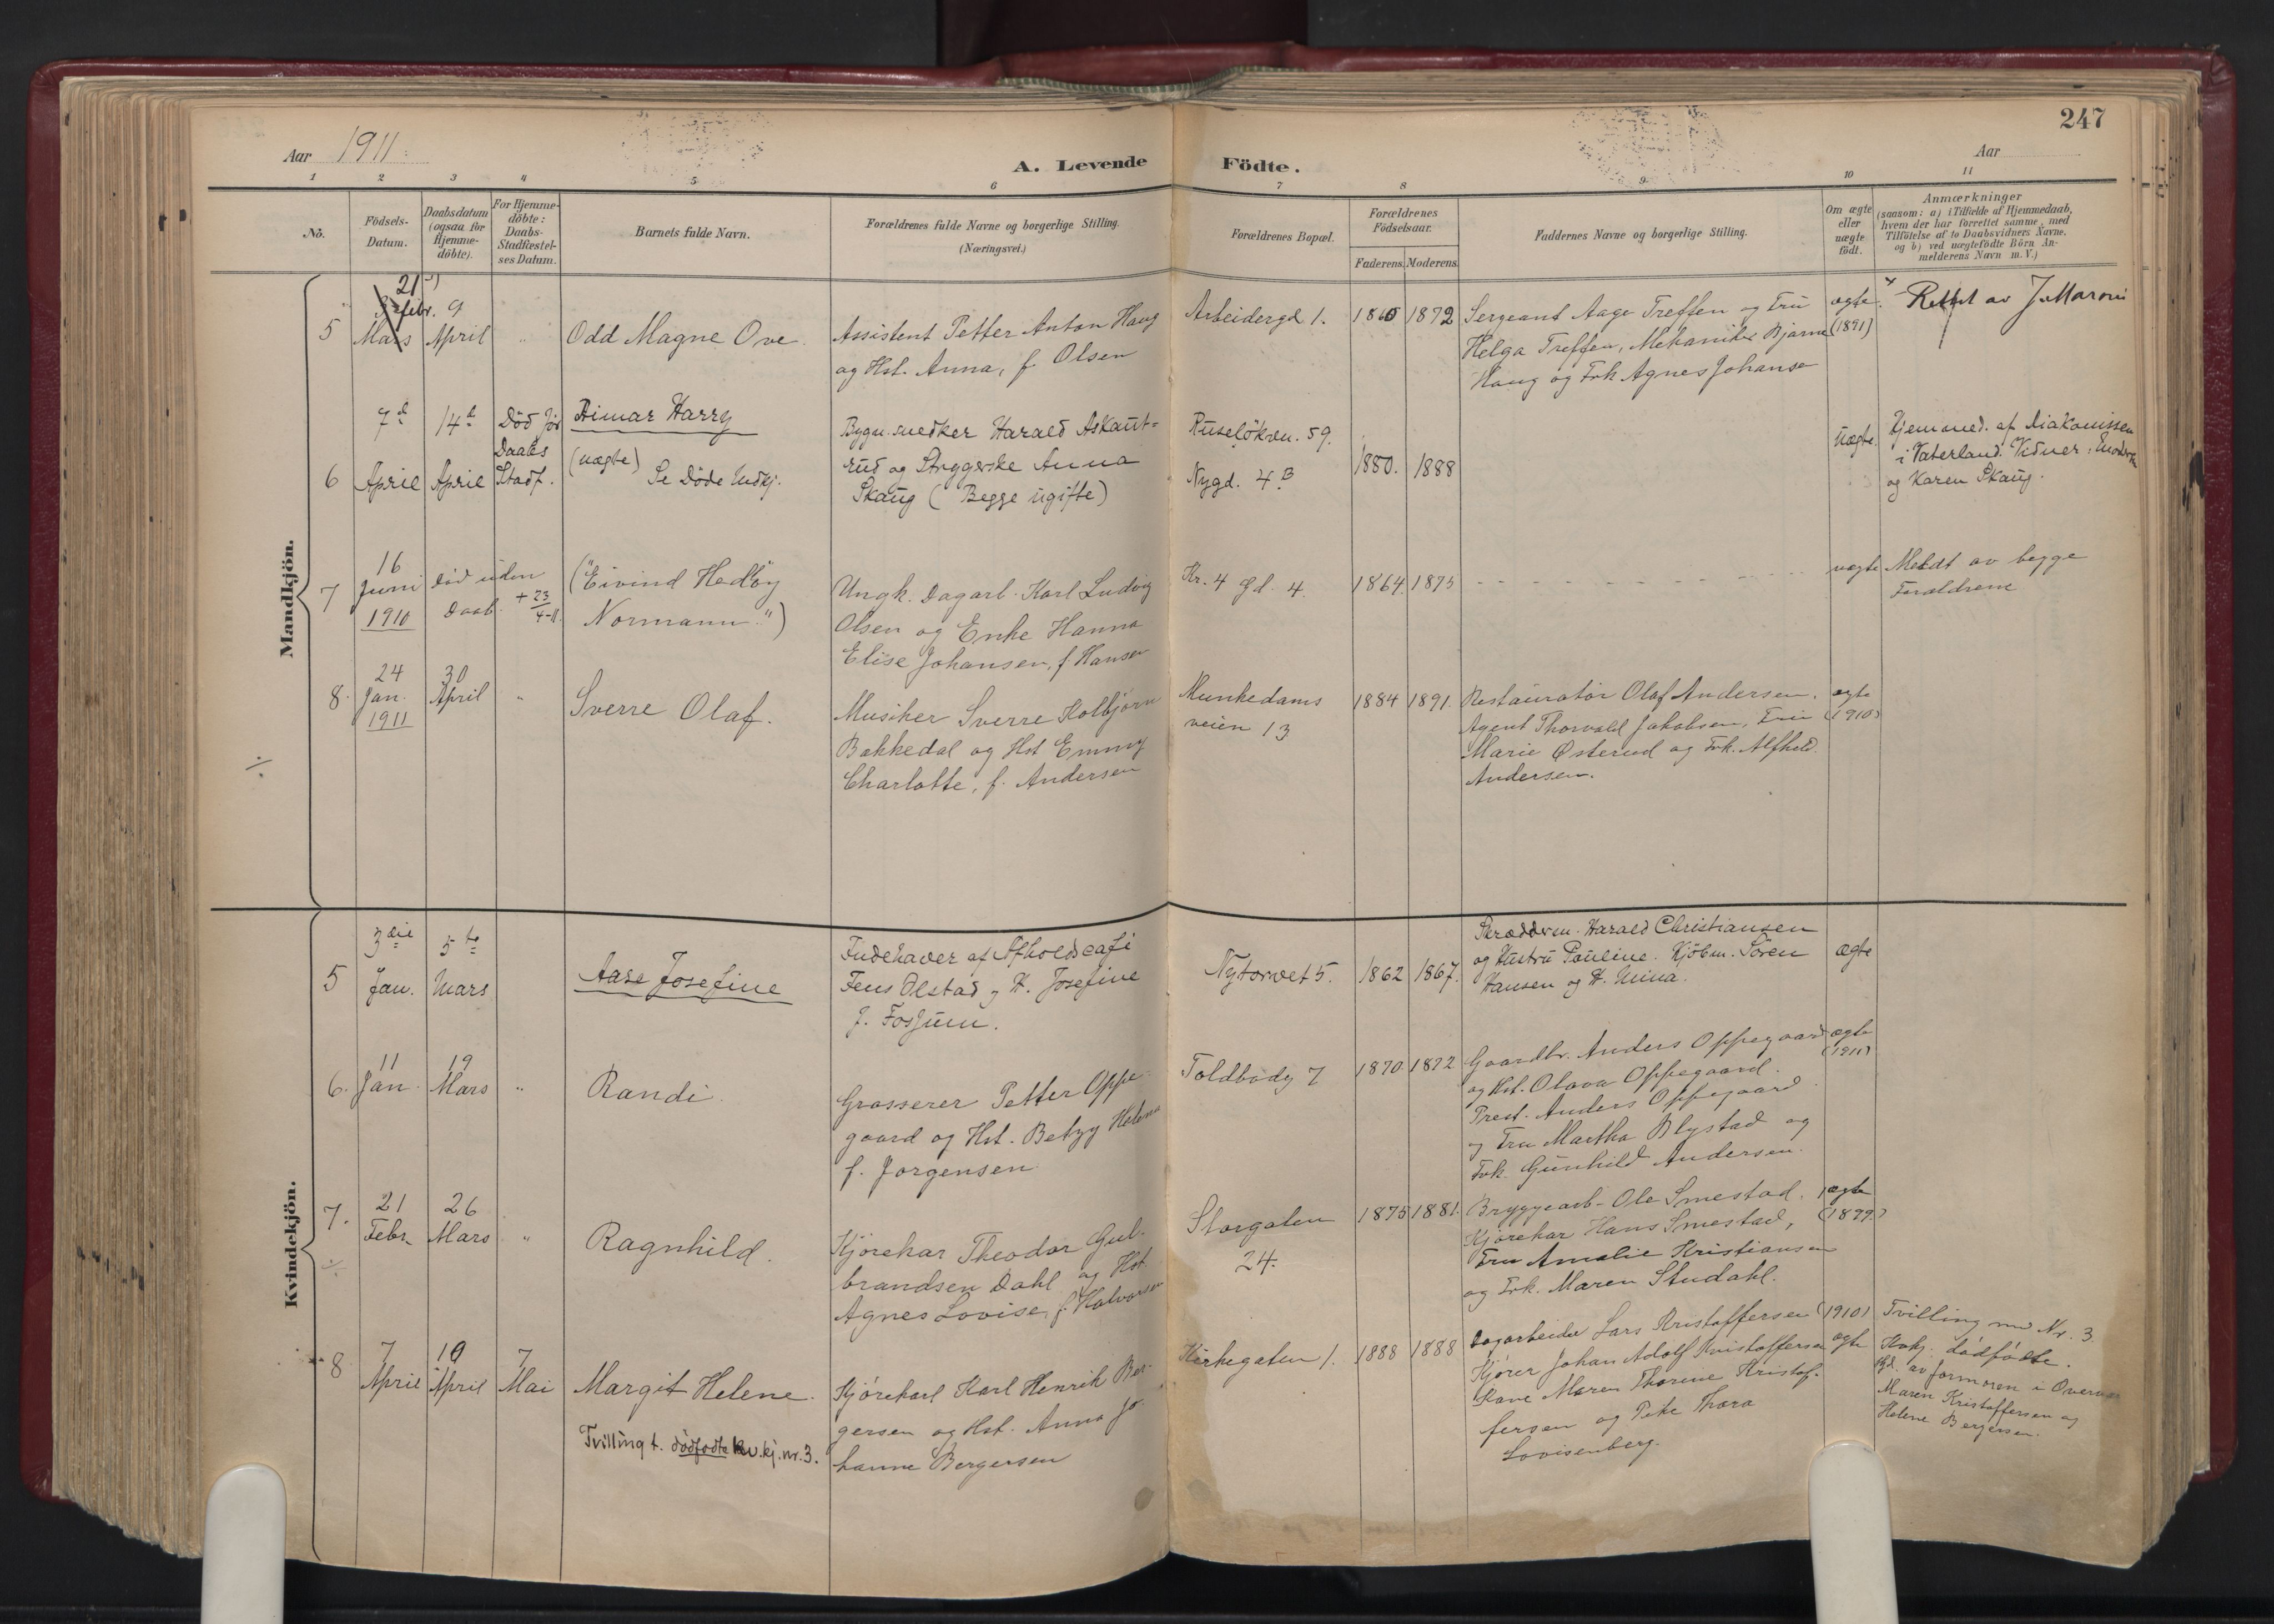 247
Aar 1911.
A. Levende Födte.
Aar
1 2 3 4 5 6 7 8 9 10 11
No.
Födsels-
Datum.
Daabsdatum
(ogsaa for
Hjemme-
döbte).
For Hjemme-
döbte:
Daabs-
Stadfæstel-
ses Datum.
Barnets fulde Navn.
Forældrenes fulde Navne og borgerlige Stilling.
(Næringsvei.)
Forældrenes Bopæl.
Forældrenes
Födselsaar.
Faderens. Moderens.
Faddernes Navne og borgerlige Stilling.
Om ægte
eller
uægte
födt.
Anmærkninger
(saasom: a) i Tilfælde af Hjemmedaab,
hvem der har forrettet samme, med
Tilföielse af to Daabsvidners Navne.
og b) ved uægtefödte Börn An-
melderens Navn m. V.)
Mandkjön.
5
21
febr.
Mars
9
April
"
Odd Magne Ove.
Assistent Petter Anton Haug
og Hst. Anna, f Olsen
Arbeidergd 1.
1872
Sergeant Aage Treffen og Fru
Helga Treffen, Mekaniker Bjarne
Haug og Frk Agnes Johansen
ægte.
(1891)
Rettet av J. Maroni
6
7d
April
14d
April
Död för
Daabs
Stadf.
Harry
(uægte)
Se Döde Mdkj.
Bygn. snedker Harald Askaut=
rud og Strygerske Anna
Skaug ( Begge ugifte)
Ruselökvn. 59.
Nygd. 4B
1880. 1888
Uægte.
Hjemmed. af Diakonissen
i Vaterland. Vidner:
og Karen Skaug.
7
16
Juni
1910
död uden
Daab. + 23/4-11.
("Eivind Hedböy
Normann")
Ungk. Dagarb. Karl Ludvig
Olsen og Enke Hanna
Elise Johansen, f. Hansen
Kr. 4 gd. 4.
1864. 1875
uægte
Meldt av begge
Forældrene
8.
24
Jan.
1911
30
April
"
Sverre Olaf.
Musiker Sverre Kolbjörn
Bakkedal og Hst Emmy
Charlotte, f. Andersen
Munkedams
veien 13
1884 1891.
Restauratör Olaf Andersen.
Agent Thorvald Jakobsen, Fru
Marie Østerud og Frk. Alfhild
Andersen.
ægte
(1910)
Kvindekjön.
5
3die
Jan.
5te
Mars
Aase Josefine
Indehaver af Afholdscafe
Jens Olstad og H. Josefine
f. Fosjum.
Nytorvet 5.
1862 1867.
Skræddersv. Harald Christiansen
og Hustru Pauline. Kjöbm. Sören
Hansen og H. Mina.
Ægte
6.
11
Jan.
19
Mars
"
Randi.
Grosserer Petter Oppe-
gaard og Hst. Betzy Helena
f. Jorgensen
Toldbodg 7
1870 1872
Gaardbr. Anders Oppegaard
og Hst. Olava Oppegaard.
Prest. Anders Oppegaard
og Fru Martha Blystad og
Frk. Gunhild Andersen.
ægte
(1911)
7.
21
Febr.
26
Mars
"
Ragnhild.
Kjörekar Theodor Gul-
brandsen Dahl og Hst.
Agnes Lovise, f. Halvorsen
Storgaten
24.
1875 1881.
Bryggearb. Ole Smestad,
Kjörekar Hans Smestad,
Fru Amalie Kristiansen
og Frk. Maren Studahl.
ægte
(1899)
8
7
April
10
April
7
Mai
Margit Helene.
Tvilling t. dødfødte kv.kj. nr. 3.
Kjörekarl Karl Henrik Ber-
gersen og Hst. Anna Jo-
hanne Bergersen
Kirkegaten 1.
1888 1888
Dagarbeider Lars Kristoffersen
Kjörer Johan Adolf Kristoffersen
Kone Maren Thorine Kristof-
fersen og Pike Thora
Lovisenberg.
(1910)
ægte
Tvilling med Nr. 3
Kvkj. dödfödte.
Hd. av formoren i Overvær
Maren Kristoffersen og
Helene Bergersen.